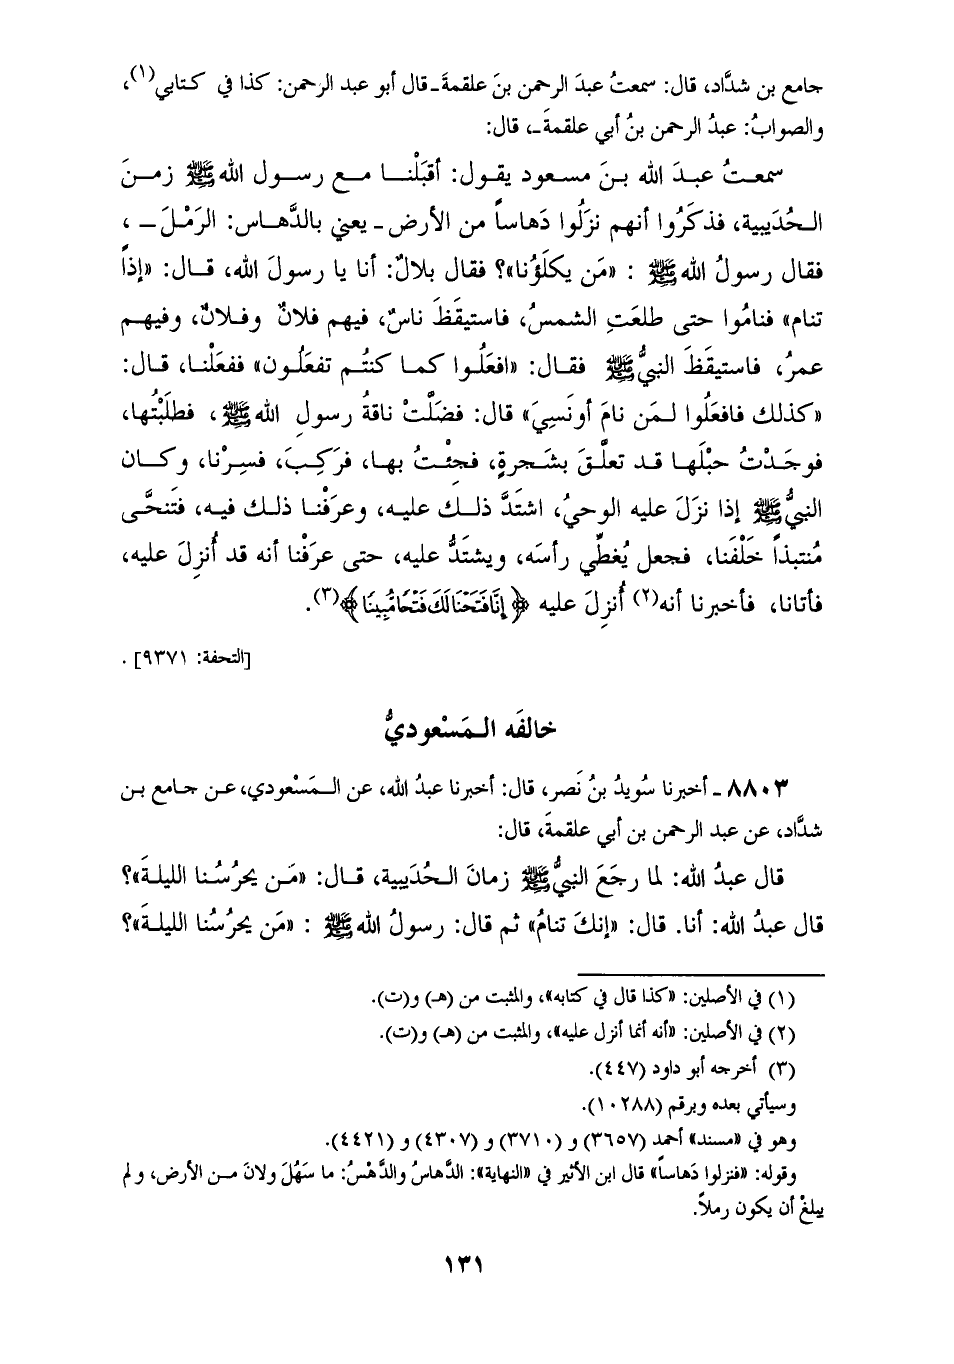 جامع بن شدَّاد، قال: سمعتُ عبدَ الرحمن بنَ علقمةَ ـ قال أبو عبد الرحمن: كذا في كتابي(١)،
والصوابُ: عبدُ الرحمن بنُ أبي علقمةَ ـ، قال:
سمعتُ عبدَ الله بنَ مسعود يقول: أقبَلْنا مع رسول الله ﷺ زمنَ
الحُدَيبية، فذكَرُوا أنهم نزَلُوا دَهاساً من الأرض ـ يعني بالدَّهاس: الرَمْلَ ـ ،
فقال رسولُ الله ﷺ : «مَن يكلَؤُنا»؟ فقال بلالٌ: أنا يا رسولَ الله، قال: «إذاً
تنام» فنامُوا حتى طلعَتِ الشمسُ، فاستيقَظَ ناسٌ، فيهم فلانٌ وفلانٌ، وفيهم
عمرُ، فاستيقَظَ النبيُّ ﷺ فقال: «افعَلُوا كما كنتُم تفعَلُون» ففعَلْنا، قال:
«كذلك فافعَلُوا لمَن نامَ أو نَسِيَ» قال: فضَلَّتْ ناقةُ رسولِ الله ﷺ ، فطلَبْتُها،
فوجَدْتُ حبْلَها قد تعلَّقَ بشجرةٍ، فجئْتُ بها، فرَكِبَ، فسِرْنا، وكان
النبيُّ ﷺ إذا نزَلَ عليه الوحيُ، اشتَدَّ ذلك عليه، وعرَفْنا ذلك فيه، فتَنحَّى
مُنتبذاً خَلْفَنا، فجعل يُغطِّي رأسَه، ويشتَدُّ عليه، حتى عرَفْنا أنه قد أُنزِلَ عليه،
فأتانا، فأخبرنا أنه(٢) أُنزِلَ عليه ﴿إِنَّا فَتَحْنَا لَكَ فَتْحًا مُّبِينًا﴾(٣).
[التحفة: ٩٣٧١] .
خالفَه المَسْعوديُّ
٨٨٠٣ ـ أخبرنا سُويدُ بنُ نَصر، قال: أخبرنا عبدُ الله، عن المَسْعودي، عن جامع بن
شدَّاد، عن عبد الرحمن بن أبي علقمةَ، قال:
قال عبدُ الله: لما رجَعَ النبيُّ ﷺ زمانَ الحُدَيبية، قال: «مَن يحرُسُنا الليلةَ»؟
قال عبدُ الله: أنا. قال: «إنكَ تنامُ» ثم قال: رسولُ الله ﷺ : «مَن يحرُسُنا الليلةَ»؟
(١) في الأصلين: «كذا قال في كتابه»، والمثبت من (هـ) و(ت).
(٢) في الأصلين: «أنه أنما أنزل عليه»، والمثبت من (هـ) و(ت).
(٣) أخرجه أبو داود (٤٤٧).
وسيأتي بعده وبرقم (١٠٢٨٨).
وهو في «مسند» أحمد (٣٦٥٧) و (٣٧١٠) و (٤٣٠٧) و (٤٤٢١).
وقوله: «فنزلوا دَهاساً» قال ابن الأثير في «النهاية»: الدَّهاسُ والدَّهْسُ: ما سَهُلَ ولانَ من الأرض، و لم
يبلغْ أن يكون رملاً.
١٣١